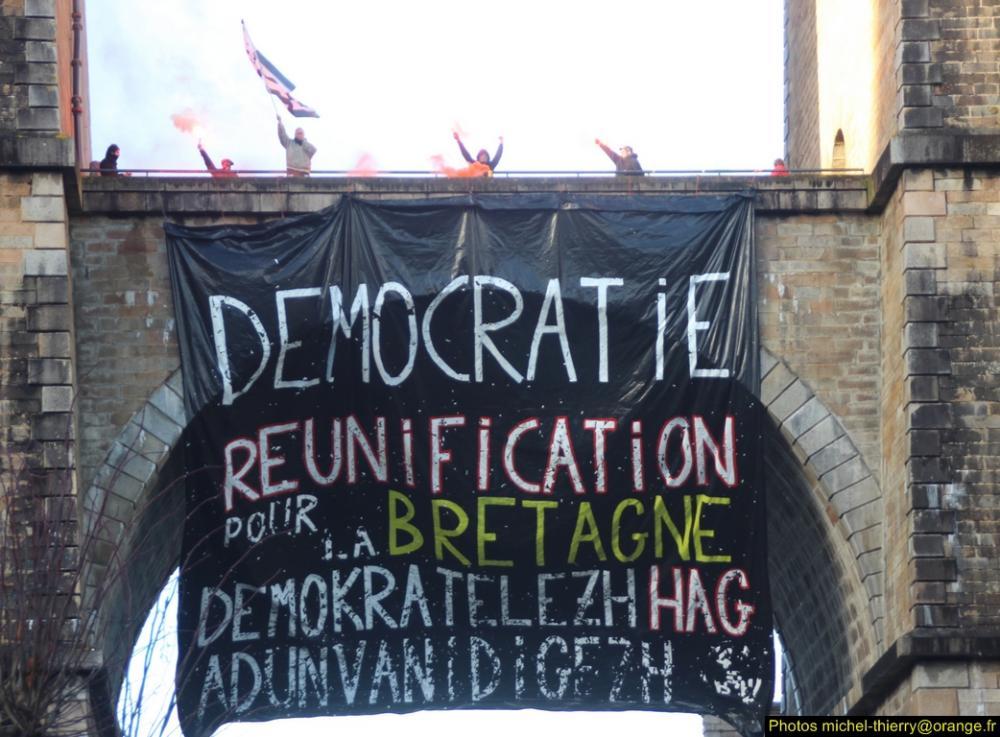 DEMOCRATiE
REUNiFiCATiON
POUR
LA BRETAGNE
DEMOKRATELEZH HAG
ADUNVANiDiGEZH
Photos michel-thierry@orange.fr